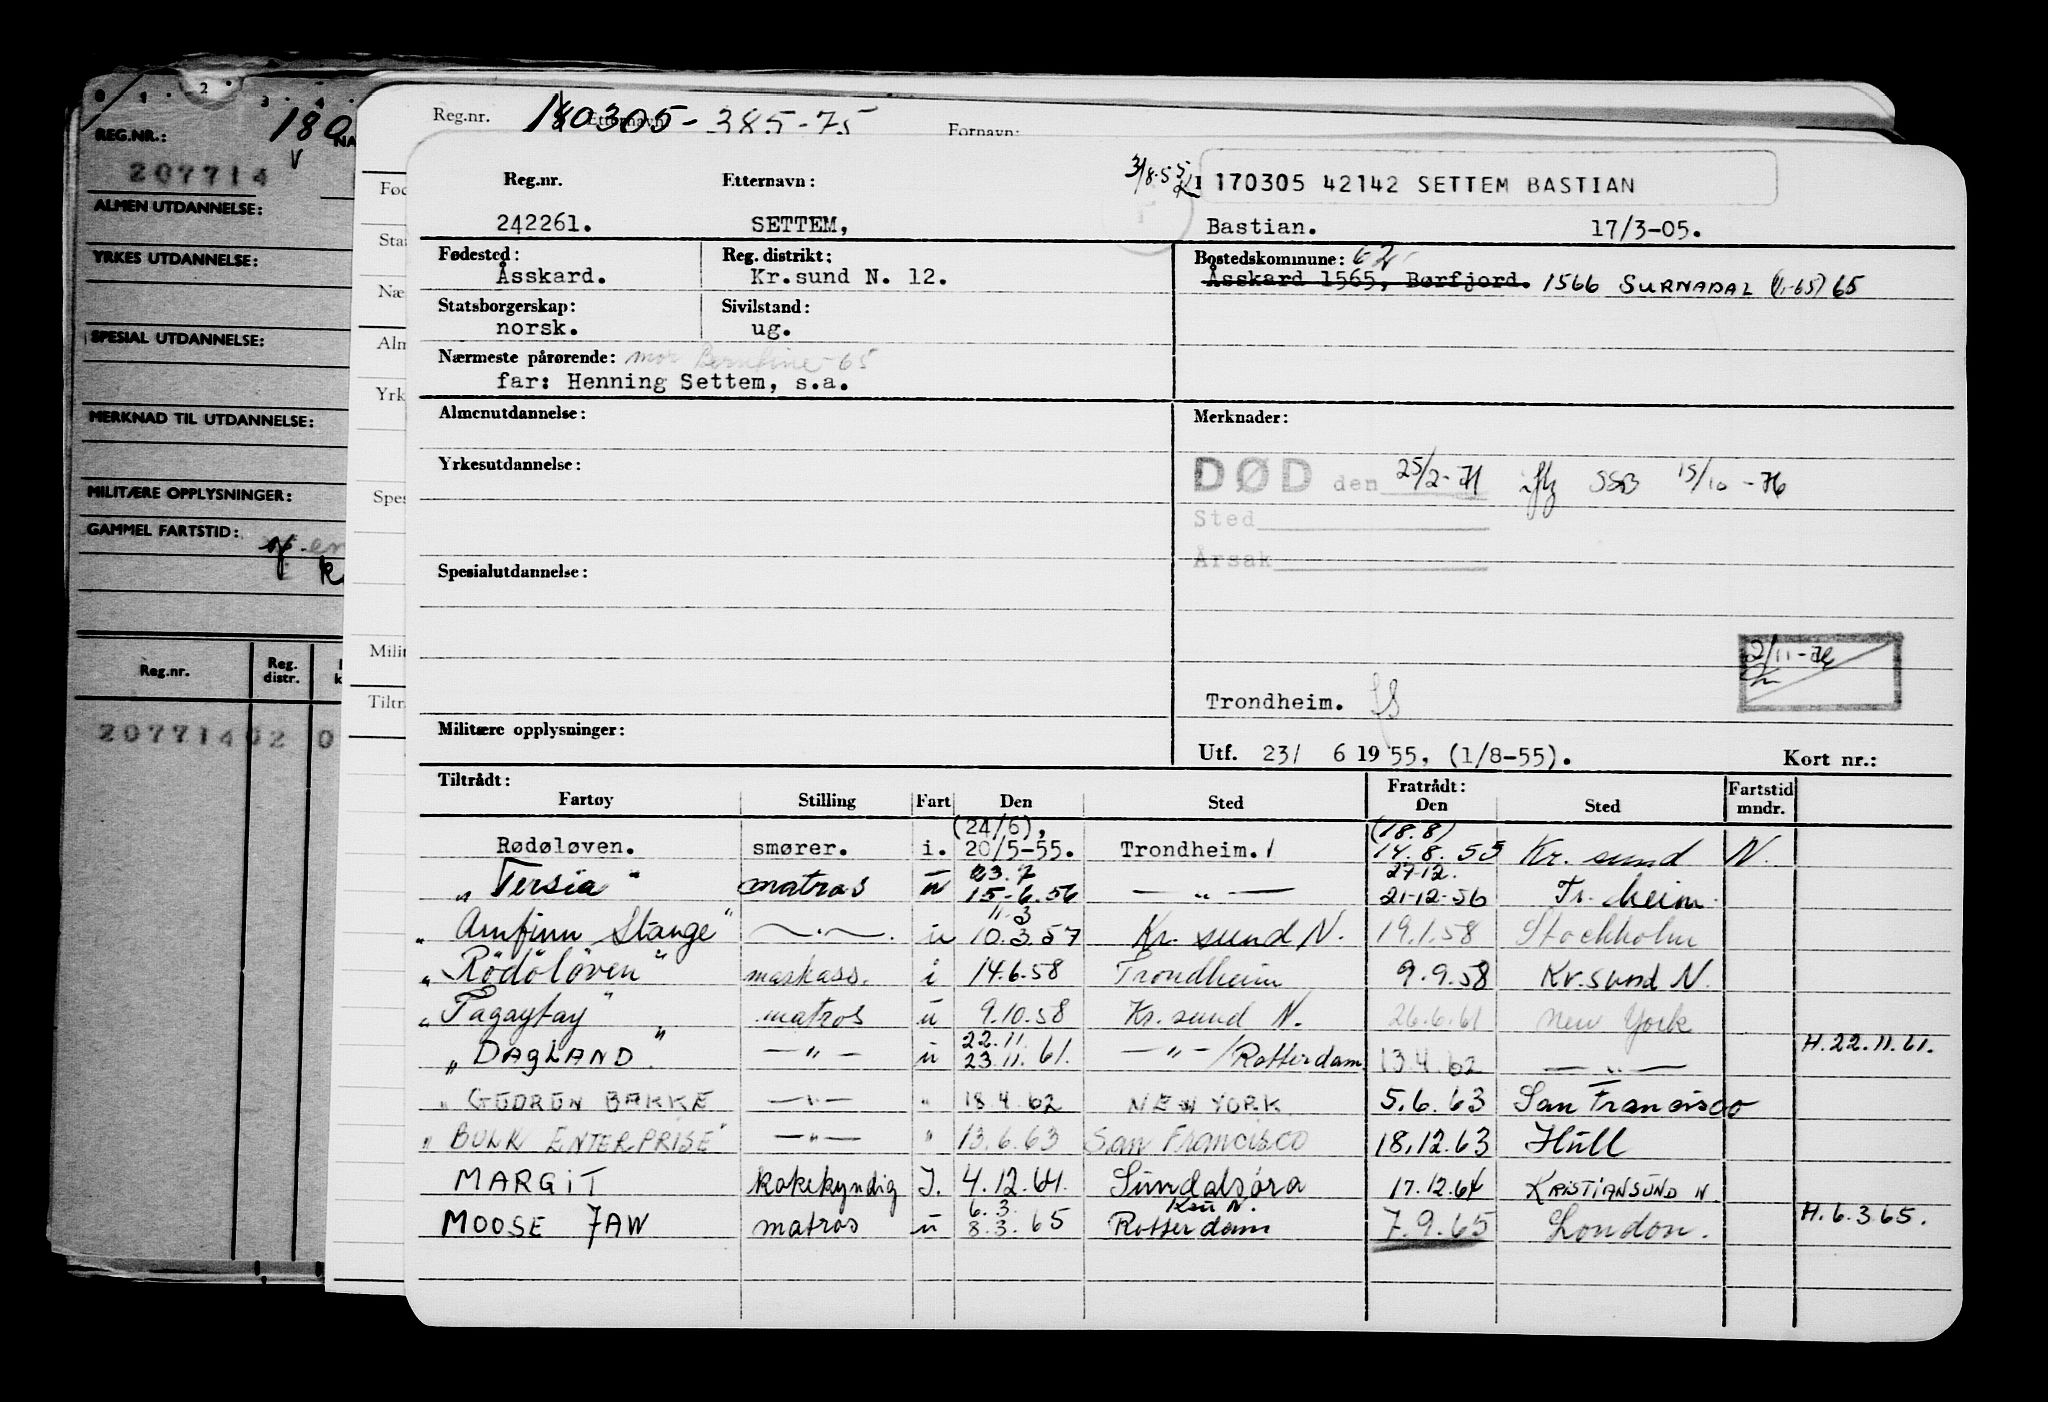 2 3 4
REG.NR.: 180 NA
207714
ALMEN UTDANNELSE:
YRKES UTDANNELSE:
SPESIAL UTDANNELSE:
MERKNAD TIL UTDANNELSE:
MILITÆRE OPPLYSNINGER:
GAMMEL FARTSTID:
Reg.nr. Reg. distr.
207714 02 0
Reg.nr. 180305-385-75 Etternavn Fornavn:
Fød
Stat
Næ
Alm
Yrk
Spes
Milit
Tiltr
3/8-55 170305 42142 SETTEM BASTIAN
Reg.nr. Etternavn:
242261. SETTEM, Bastian. 17/3-05.
Fødested: Reg. distrikt: Bostedskommune: 62
Åsskard. Kr.sund N. 12. Åsskard 1565, Børfjord. 1566 SURNADAL (1/1-65) 65
Statsborgerskap: Sivilstand:
norsk. ug.
Nærmeste pårørende: mor Berntine -65
far: Henning Settem, s.a.
Almenutdannelse: Merknader:
Yrkesutdannelse: DØD den 25/2-71 iflg SSB 15/10-76
Sted
Årsak
Spesialutdannelse:
2/11-76
Trondheim.
Militære opplysninger:
Utf. 23/ 6 1955, (1/8-55). Kort nr.:
Tiltrådt: Fratrådt: Fartstid
Fartøy Stilling Fart Den Sted Den Sted mndr.
(24/6), (18.8)
Rødøløven. smører. i. 20/5-55. Trondheim. 14.8.55 Kr. sund N.
23.7 27-12.
"Tersia" matros u 15-6.56 — " — 21-12-56 Tr. heim.
11.3
"Arnfinn Stange" — " — u 10.3.57 Kr. sund N. 19.1.58 Stockholm
"Rödöløven" maskass. i 14.6.58 Trondheim 9.9.58 Kr.sund N.
"Tagaytay" matros u 9.10.58 Kr. sund N. 26.6.61 New York
22.11.
"DAGLAND" — " — u 23.11.61. — " — / Rotterdam 13.4.62 — " — H.22.11.61.
"GUDRUN BAKKE — " — " 18.4.62 NEW YORK 5.6.63 San Francisco
"BULK ENTERPRISE" — " — " 13.6.63 San Francisco 18.12.63 Hull
MARGIT kokekyndig I. 4.12.64. Sundalsøra 17.12.64 KRISTIANSUND N.
6.3. Ksu N. H.6.3.65.
MOOSE JAW matros u 8.3.65 Rotterdam 7.9.65 London.